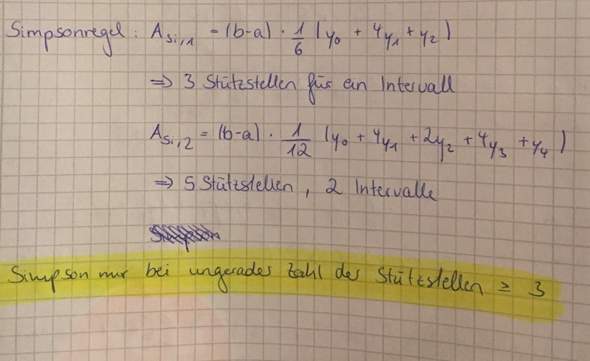 Simpsonregel: A_{Si,1} = (b-a) · 1/6 (y₀ + 4y₁ + y₂)
⇒ 3 Stützstellen für ein Intervall
A_{Si,2} = (b-a) · 1/12 (y₀ + 4y₁ + 2y₂ + 4y₃ + y₄)
⇒ 5 Stützstellen, 2 Intervalle
Simpson nur bei ungerader Zahl der Stützstellen ≥ 3